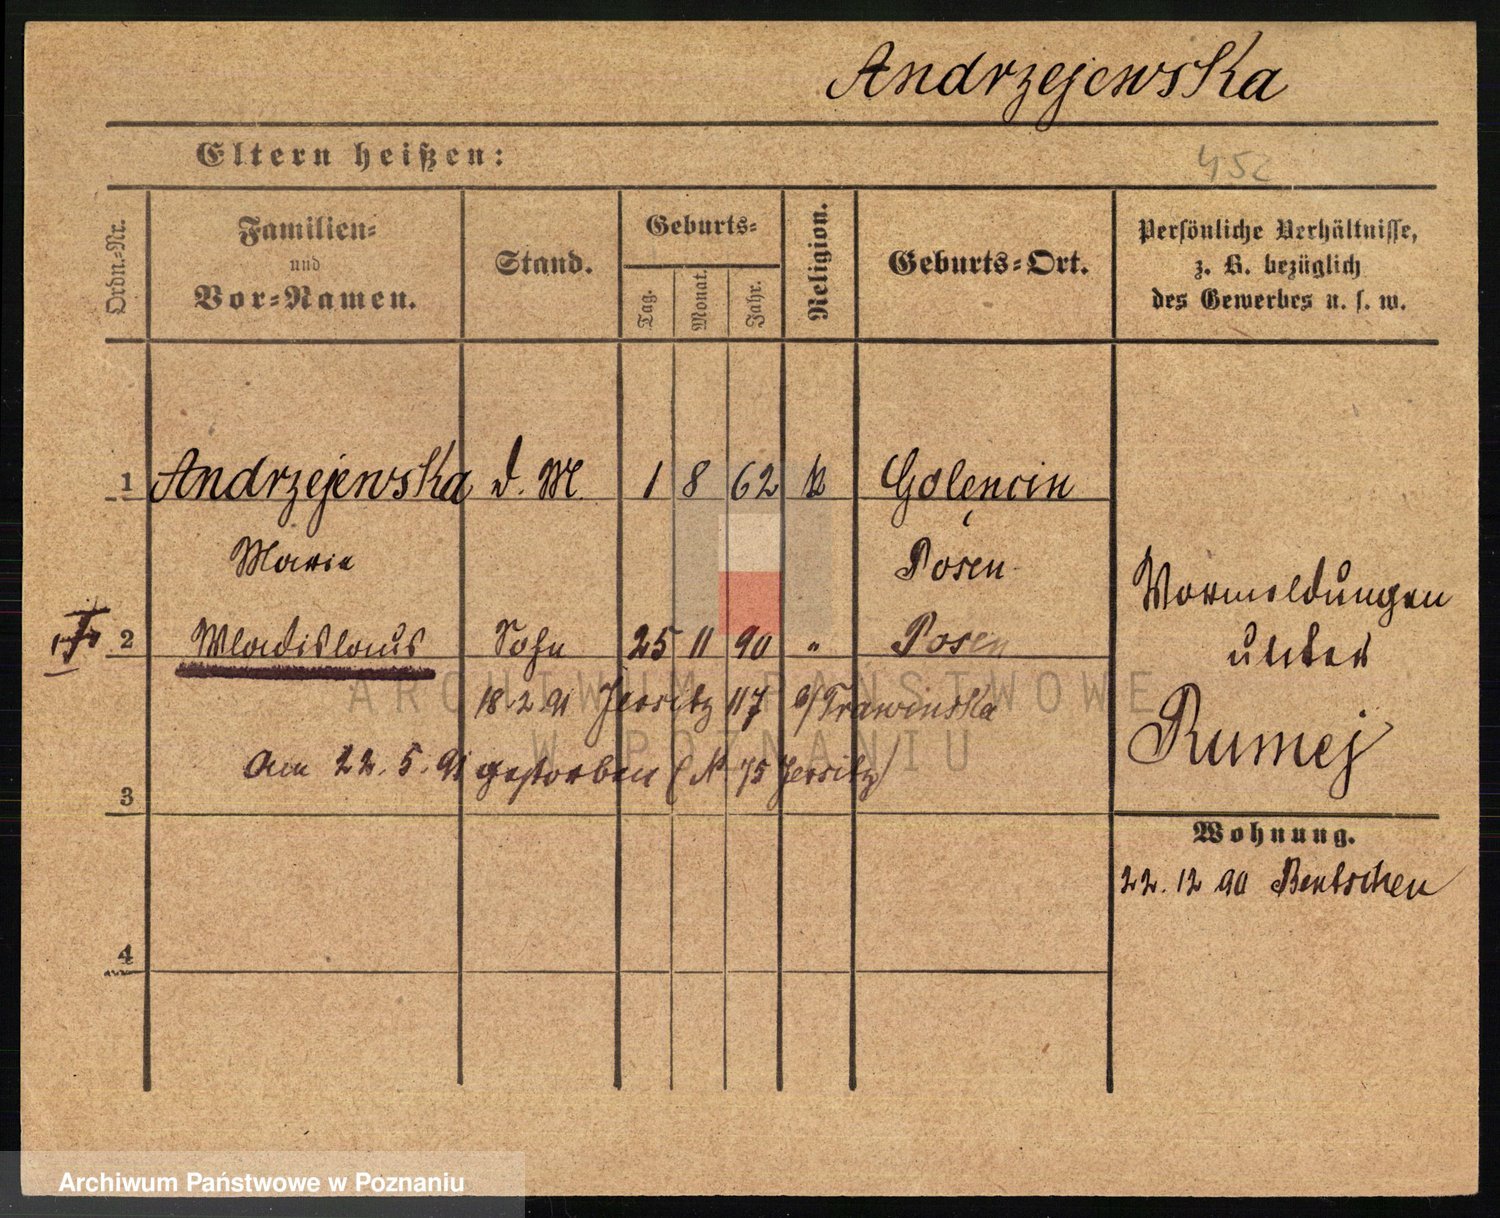 Andrzejewska
Eltern heißen:
452
Ordn.-Nr.
Familien=
und
Vor=Namen.
Stand.
Geburts=
Tag.
Monat.
Jahr.
Religion.
Geburts=Ort.
Persönliche Verhältnisse,
z. B. bezüglich
des Gewerbes u. s. w.
1 Andrzejewska d. M. 1 8 62 k Golencin
Marie Posen
2 Wladislaus Sohn 25 11 90 " Posen
18.2.91 Jersitz 117 b/Trawinska
am 22.5.91 gestorben (N 75 Jersitz)
3
4
Vormeldungen
unter
Rumej
Wohnung.
22.12 90 Bentschen
ARCHIWUM PAŃSTWOWE
W POZNANIU
Archiwum Państwowe w Poznaniu